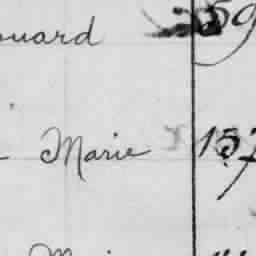 ouard 59
Marie 157